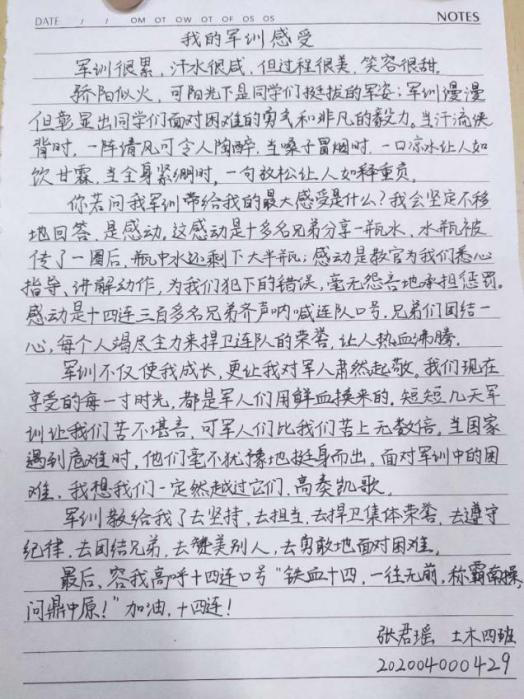 DATE / / OM OT OW OT OF OS OS NOTES
我的军训感受
军训很累，汗水很咸，但过程很美，笑容很甜。
骄阳似火，可阳光下是同学们挺拔的军姿；军训漫漫
但彰显出同学们面对困难的勇气和非凡的毅力。当汗流浃
背时，一阵清风可令人陶醉，当嗓子冒烟时，一口凉水让人如
饮甘霖，当全身紧绷时，一句放松让人如释重负。
你若问我军训带给我的最大感受是什么？我会坚定不移
地回答，是感动。这感动是十多名兄弟分享一瓶水，水瓶被
传了一圈后，瓶中水还剩下大半瓶；感动是教官为我们悉心
指导、讲解动作，为我们犯下的错误，毫无怨言地承担惩罚。
感动是十四连三百多名兄弟齐声呐喊连队口号，兄弟们团结一
心，每个人竭尽全力来捍卫连队的荣誉，让人热血沸腾。
军训不仅使我成长，更让我对军人肃然起敬。我们现在
享受的每一寸时光，都是军人们用鲜血换来的，短短几天军
训让我们苦不堪言，可军人们比我们苦上无数倍。当国家
遇到危难时，他们毫不犹豫地挺身而出。面对军训中的困
难，我想我们一定然越过它们，高奏凯歌。
军训教给我了去坚持，去担当，去捍卫集体荣誉，去遵守
纪律，去团结兄弟，去赞美别人，去勇敢地面对困难。
最后，容我高呼十四连口号“铁血十四，一往无前，称霸南操，
问鼎中原！”加油，十四连！
张君瑶 土木四班
202004000429